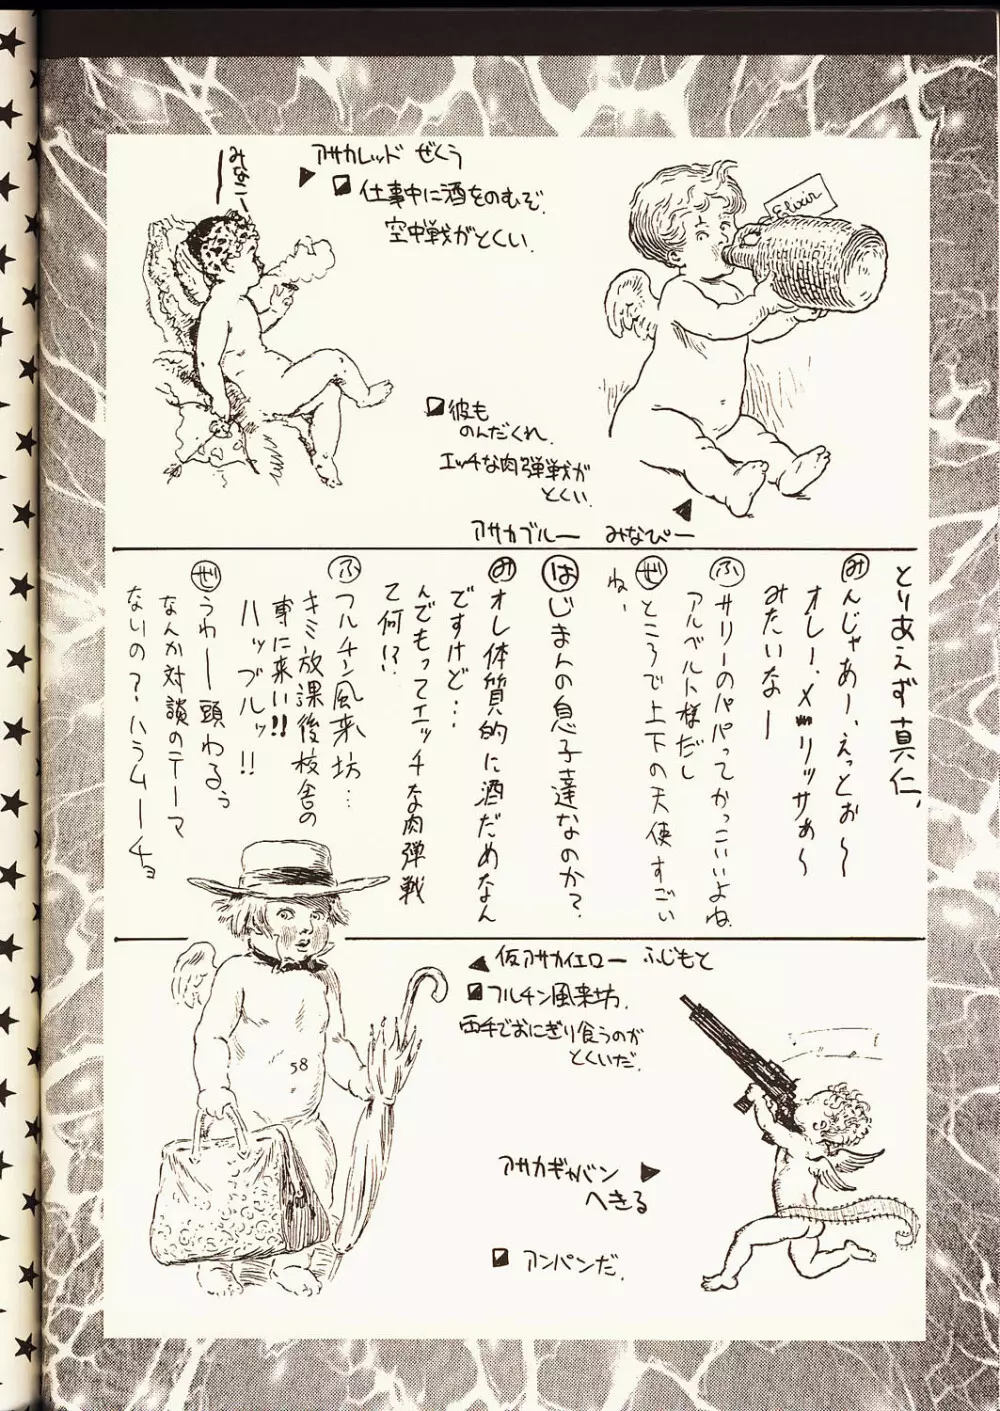 みなこー
アサカレッド ぜくう
仕事中に酒をのむぞ。
空中戦がとくい。
Elixir
彼も
のんだくれ。
エッチな肉弾戦が
とくい。
アサカブルー みなぴー
とりあえず真仁、
みんじゃあー、えっとぉ〜
オレー、メリッサぁ〜
みたいなー
ふサリーのパパってかっこいいよね
アルベルト様だし
ぜところで上下の天使すごい
ね、
はじまんの息子達なのか?
みオレ体質的に酒だめなん
ですけど…
んでもってエッチな肉弾戦
て何!?
ふフルチン風来坊…
キミ放課後校舎の
事に来い!!
ハッブルッ!!
ぜうわー頭わるぅ
なんか対談のテーマ
ないの?ハラムーチョ
仮アサカイエロー ふじもと
フルチン風来坊。
両手でおにぎり食うのが
とくいだ。
58
アサカギャバン
へきる
アンパンだ。